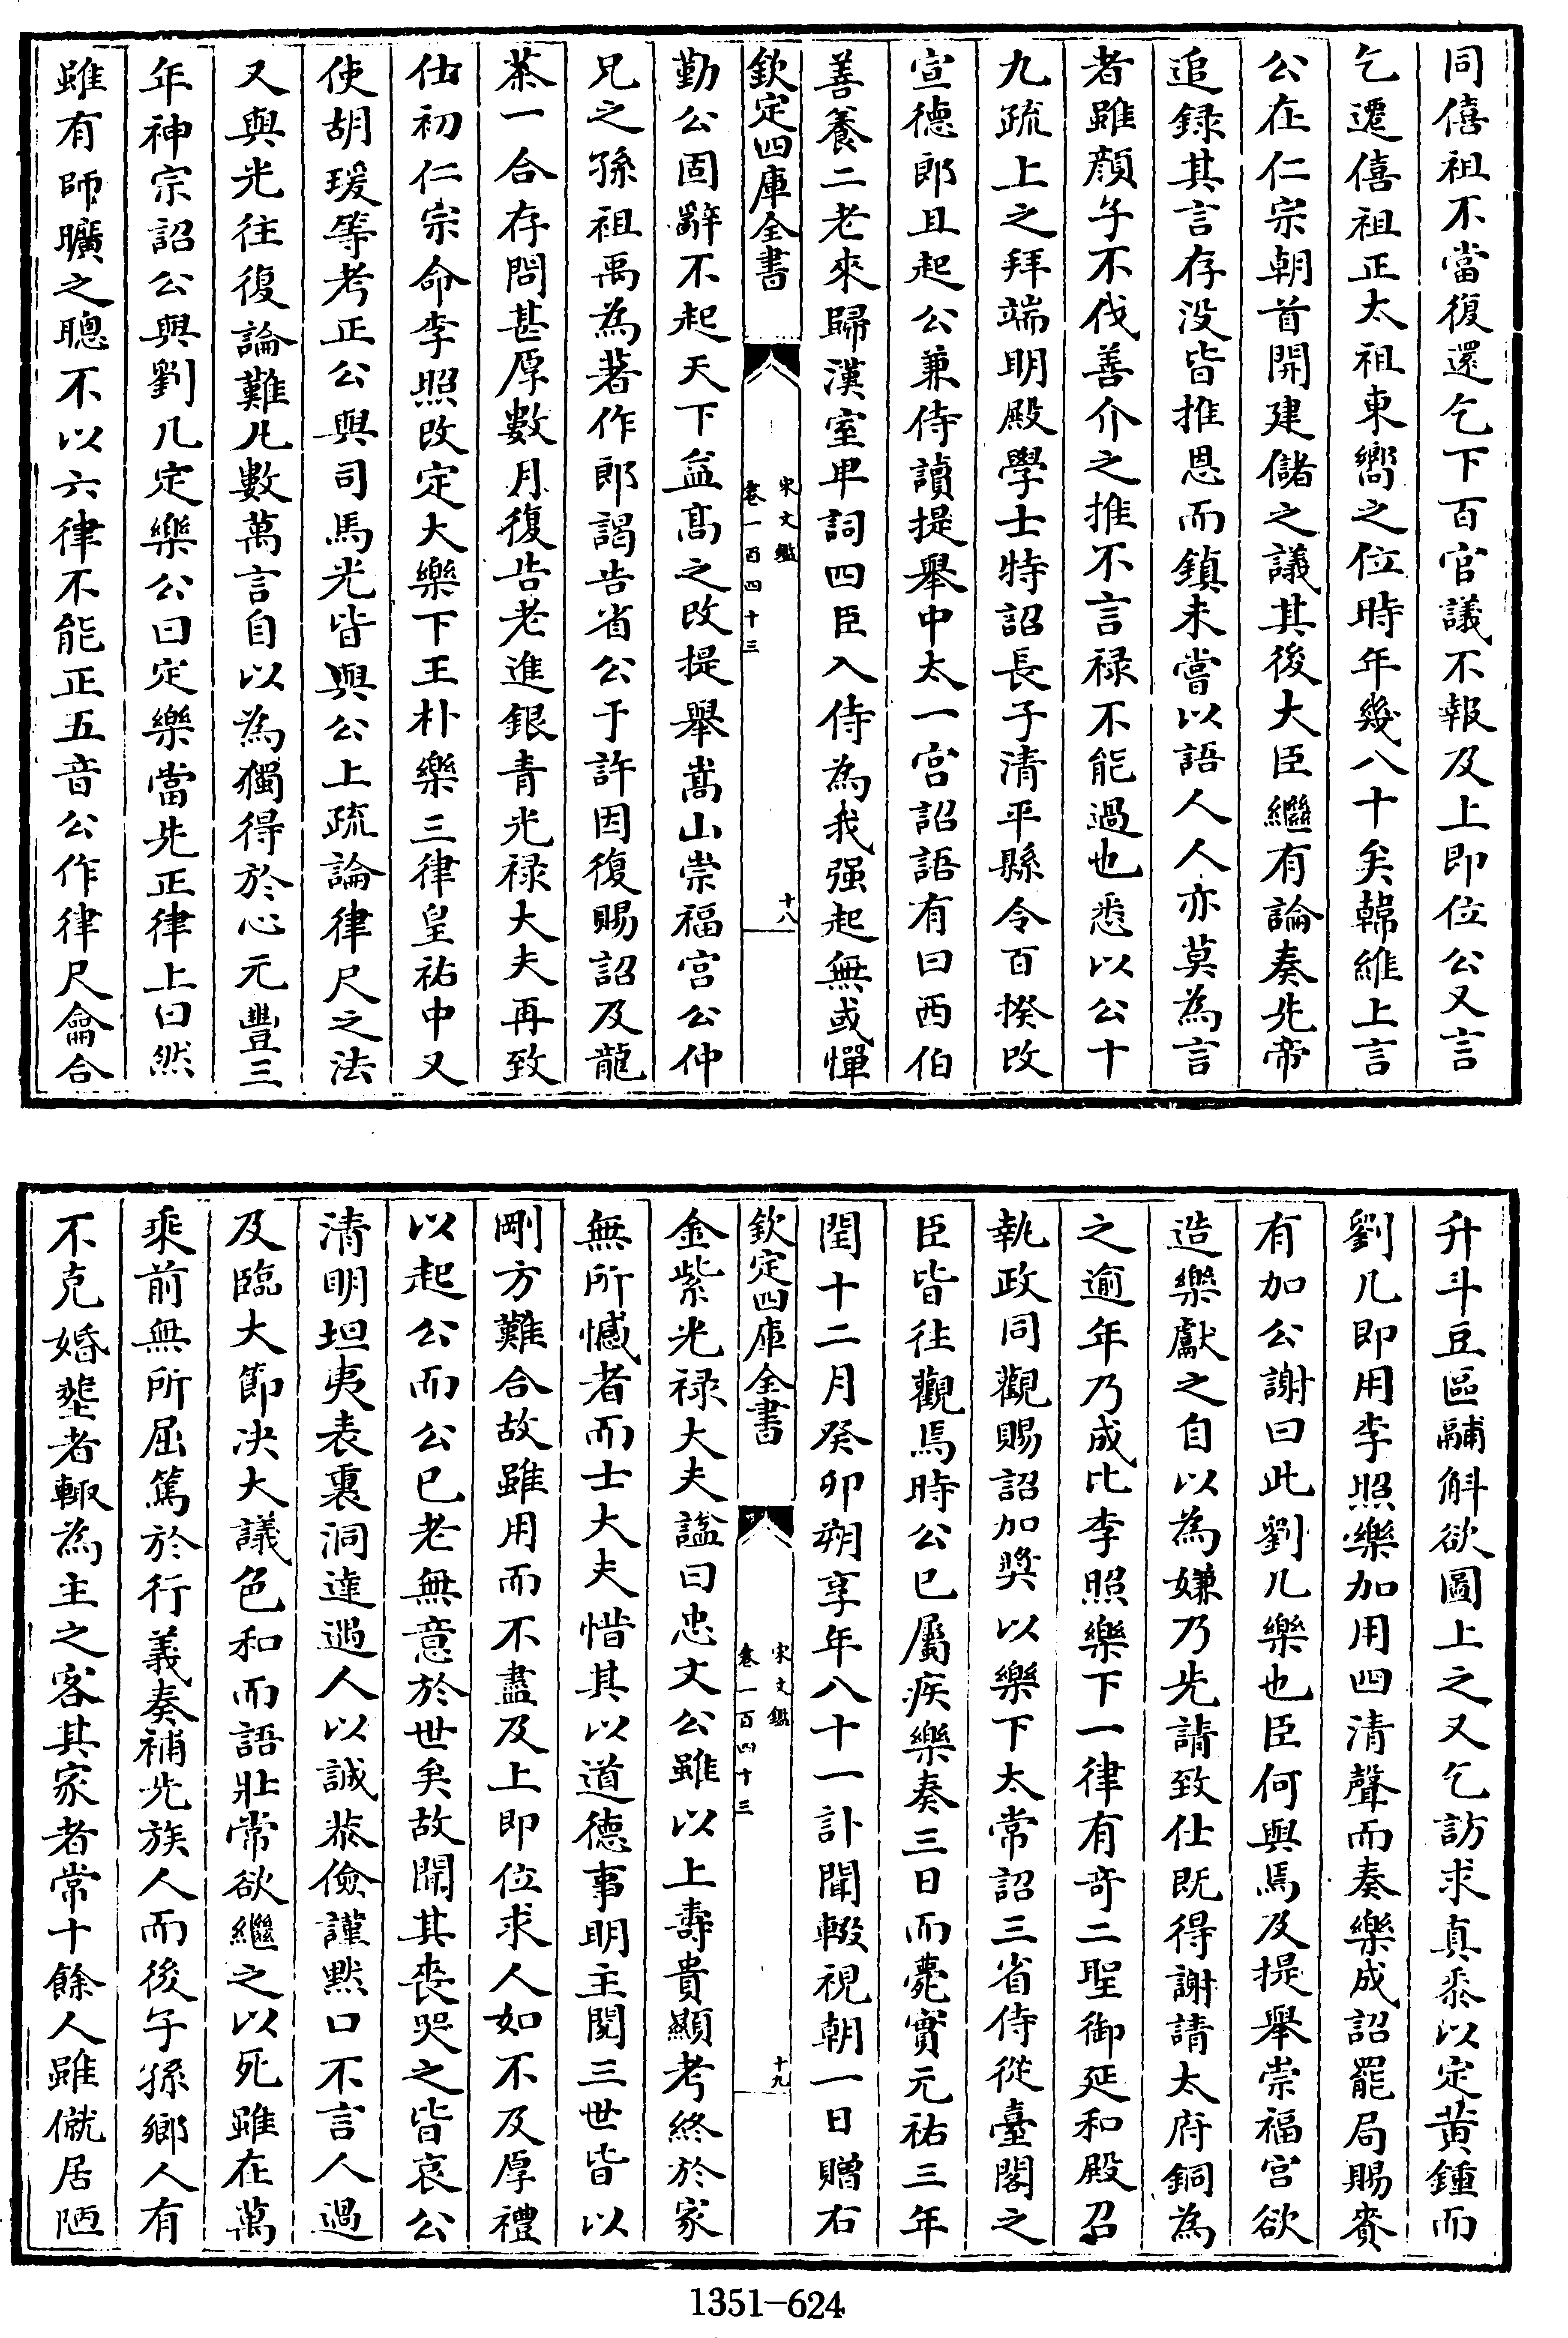 同僖祖不當復還乞下百官議不報及上即位公又言
乞遷僖祖正太祖東嚮之位時年幾八十矣韓維上言
公在仁宗朝首開建儲之議其後大臣繼有論奏先帝
追録其言存没皆推恩而鎮未嘗以語人人亦莫為言
者雖顔子不伐善介之推不言禄不能過也悉以公十
九疏上之拜端明殿學士特詔長子清平縣令百揆改
宣德郎且起公兼侍讀提舉中太一宫詔語有曰西伯
善養二老來歸漢室卑詞四臣入侍為我强起無或憚
欽定四庫全書
宋文鑑
卷一百四十三
十八
勤公固辭不起天下益髙之改提舉嵩山崇福宫公仲
兄之孫祖禹為著作郎謁告省公于許因復賜詔及龍
茶一合存問甚厚數月復告老進銀青光禄大夫再致
仕初仁宗命李照改定大樂下王朴樂三律皇祐中又
使胡瑗等考正公與司馬光皆與公上疏論律尺之法
又與光往復論難凡數萬言自以為獨得於心元豐三
年神宗詔公與劉几定樂公曰定樂當先正律上曰然
雖有師曠之聰不以六律不能正五音公作律尺龠合
升斗豆區鬴斛欲圖上之又乞訪求真黍以定黄鍾而
劉几即用李照樂加用四清聲而奏樂成詔罷局賜賚
有加公謝曰此劉几樂也臣何與焉及提舉崇福宫欲
造樂獻之自以為嫌乃先請致仕既得謝請太府銅為
之逾年乃成比李照樂下一律有奇二聖御延和殿召
執政同觀賜詔加奬以樂下太常詔三省侍從臺閣之
臣皆往觀焉時公已屬疾樂奏三日而薨實元祐三年
閏十二月癸卯朔享年八十一訃聞輟視朝一日贈右
欽定四庫全書
宋文鑑
卷一百四十三
十九
金紫光禄大夫諡曰忠文公雖以上壽貴顯考終於家
無所憾者而士大夫惜其以道德事明主閲三世皆以
剛方難合故雖用而不盡及上即位求人如不及厚禮
以起公而公已老無意於世矣故聞其喪哭之皆哀公
清明坦夷表裏洞達遇人以誠恭儉謹黙口不言人過
及臨大節决大議色和而語壯常欲繼之以死雖在萬
乘前無所屈篤於行義奏補先族人而後子孫鄉人有
不克婚塟者輙為主之客其家者常十餘人雖僦居陋
1351-624